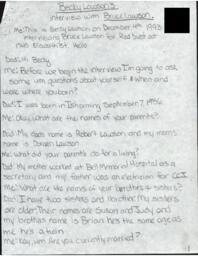 Becky Lawson's
interview with Bruce Lawson.
Me: This is Becky Lawson on December 4th 1993
interviewing Bruce Lawson for Red Dirt at
Hello
Dad: Hi Becky
Me: Before we begin the interview I'm going to
ask some um questions about yourself. When and
where were you born?
Dad: I was born in Ishpeming September 7, 1956
Me: Okay, what are the names of your parents?
Dad: My dads name is Robert Lawson and my moms
name is Doreen Lawson
Me: what did your parents do for a living?
Dad: My mother worked at Bell Memorial Hospital as a
secretary and my father was an electrician for CCI.
Me: What are the names of your brothers & sisters?
Dad: I have two sisters and 1 brother. My sisters
are older. Their names are Susan and Judy and
my brothers name is Brian he's the same age as
me he's a twin.
Me: Okay, um Are you currently married?